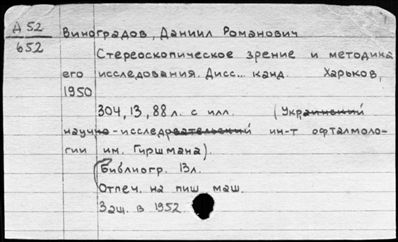 А 52
652
Виноградов, Даниил Романович
Стереоскопическое зрение и методика
его исследования. Дисс... канд. Харьков,
1950
304, 13, 88 л. с илл. (Украинский
научно-исследовательский ин-т офталмоло-
гии им. Гиршмана).
Библиогр. 13л.
Отпеч. на пиш маш.
Защ. в 1952.